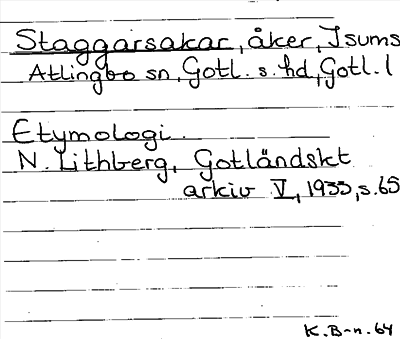 Staggarsakar, åker, Isums
Atlingbo sn, Gotl. s. hd, Gotl. l
Etymologi.
N. Lithberg, Gotländskt
arkiv V, 1933, s. 65
K. B-n. 64